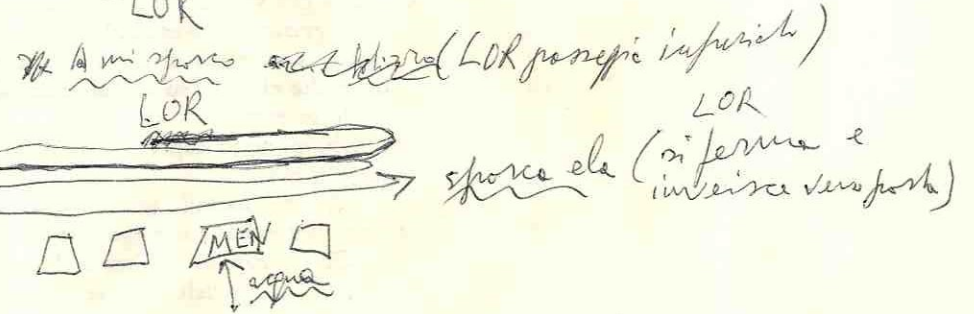 LOR
A mi sporco (LOR passeggia infuriato)
LOR
LOR
sporca ela (si ferma e
inveisce verso porta)
MEN
acqua